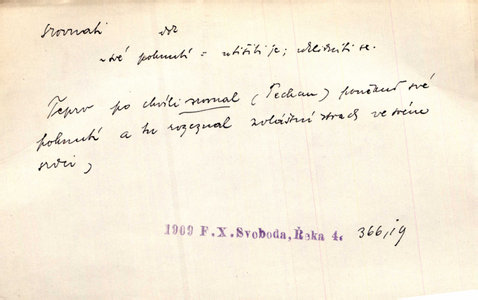 srovnati dok
~ své pohnutí = utišiti je; uklidniti se.
Teprv po chvíli srovnal (Pechan) poněkud své
pohnutí a tu rozeznal zvláštní strach ve svém
srdci,
1909 F. X. Svoboda, Řeka 4. 366, i9